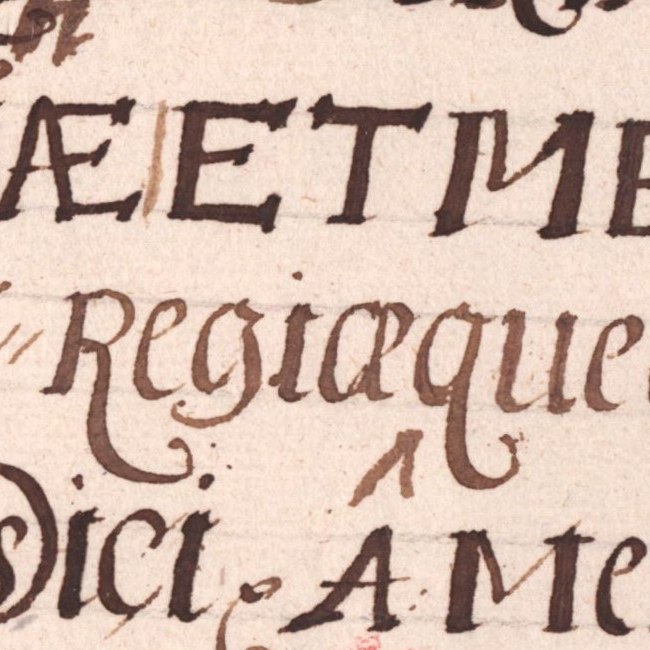 Æ|ETME
Regiæque
dici A Me